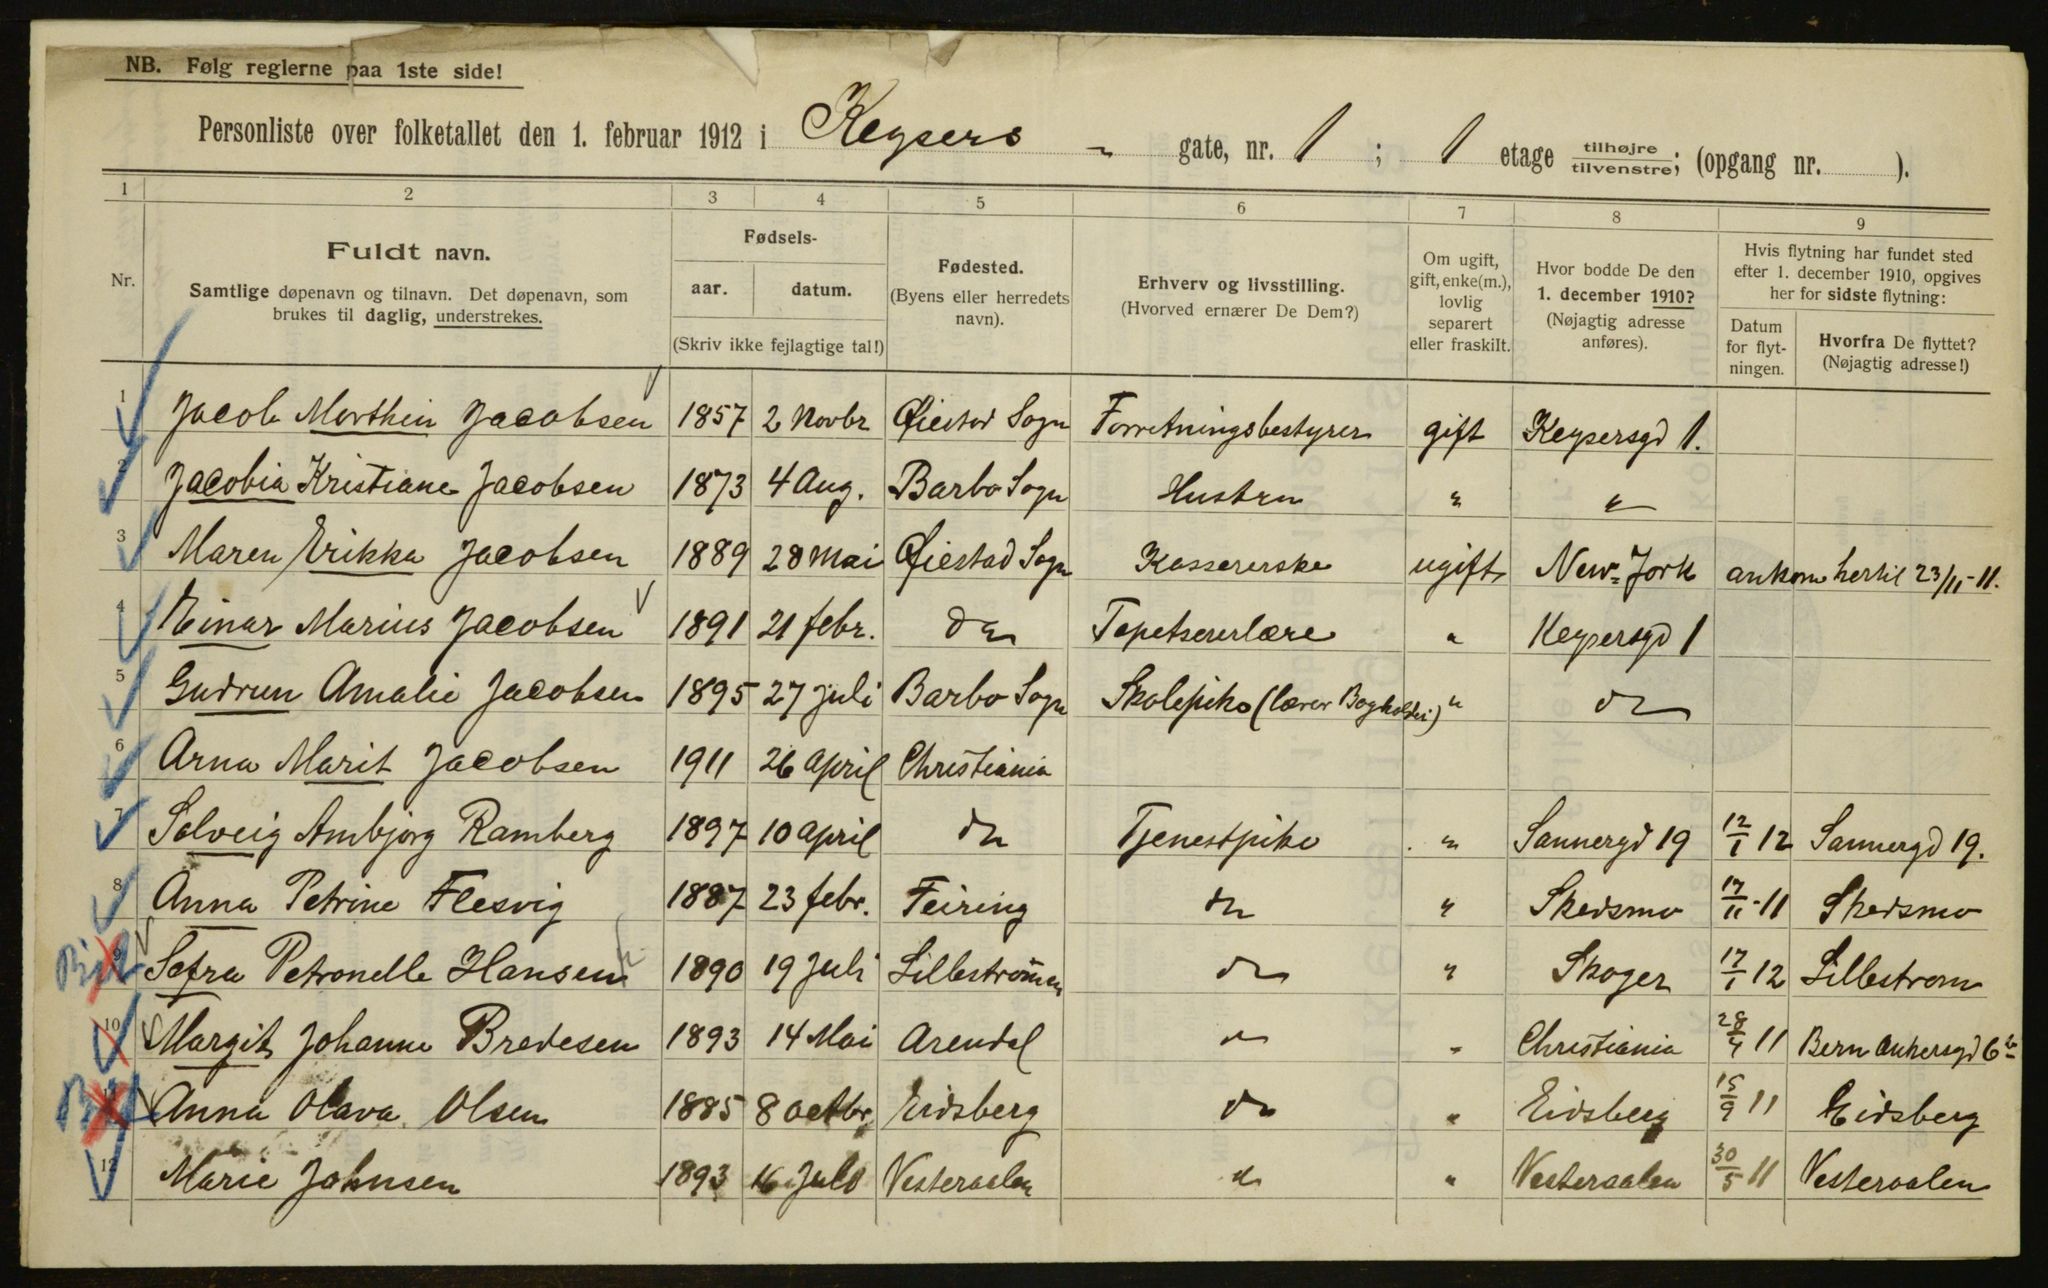 NB. Følg reglerne paa 1ste side!
Personliste over folketallet den 1. februar 1912 i Keysers gate, nr. 1 ; 1 etage tilhøjre/tilvenstre; (opgang nr. ).
1 2 3 4 5 6 7 8 9
Nr.
Fuldt navn.
Samtlige døpenavn og tilnavn. Det døpenavn, som
brukes til daglig, understrekes.
Fødsels-
aar. datum.
(Skriv ikke fejlagtige tal!)
Fødested.
(Byens eller herredets
navn).
Erhverv og livsstilling.
(Hvorved ernærer De Dem?)
Om ugift,
gift, enke(m.),
lovlig
separert
eller fraskilt.
Hvor bodde De den
1. december 1910?
(Nøjagtig adresse
anføres).
Hvis flytning har fundet sted
efter 1. december 1910, opgives
her for sidste flytning:
Datum
for flyt-
ningen.
Hvorfra De flyttet?
(Nøjagtig adresse!)
1 Jacob Marthin Jacobsen 1857 2 Novbr Øiestad Sogn Forretningsbestyrer gift Keysersgd 1.
2 Jacobia Kristiane Jacobsen 1873 4 Aug. Barbo Sogn Hustru " "
3 Maren Erikka Jacobsen 1889 28 Mai Øiestad Sogn Kassererske ugift New-York ankom hertil 23/11-11.
4 Einar Marius Jacobsen 1891 21 febr. do Tapetsererlære " Keysersgd 1
5 Gudrun Amalie Jacobsen 1895 27 juli Barbo Sogn Skolepike (lærer Bogholderi) " do
6 Arna Marit Jacobsen 1911 26 april Christiania
7 Solveig Ambjørg Ramberg 1897 10 april do Tjenestpike " Sannergd 19 12/1 12 Sannergd 19.
8 Anna Petrine Flesvig 1887 23 febr. Feiring do " Skedsmo 17/11-11 Skedsmo
9 Sofra Petronelle Hansen 1890 19 Juli Lillestrømmen do " Skoger 17/1 12 Lillestrøm
10 Margit Johanne Bredesen 1893 14 Mai Arendal do " Christiania 28/4 11 Bern Ankersgd 6
11 Anna Olava Olsen 1885 8 octbr. Eidsberg do " Eidsberg 15/9 11 Eidsberg
12 Marie Johnsen 1893 16 Juli Vesteraalen do " Vesteraalen 30/5 11 Vesteraalen